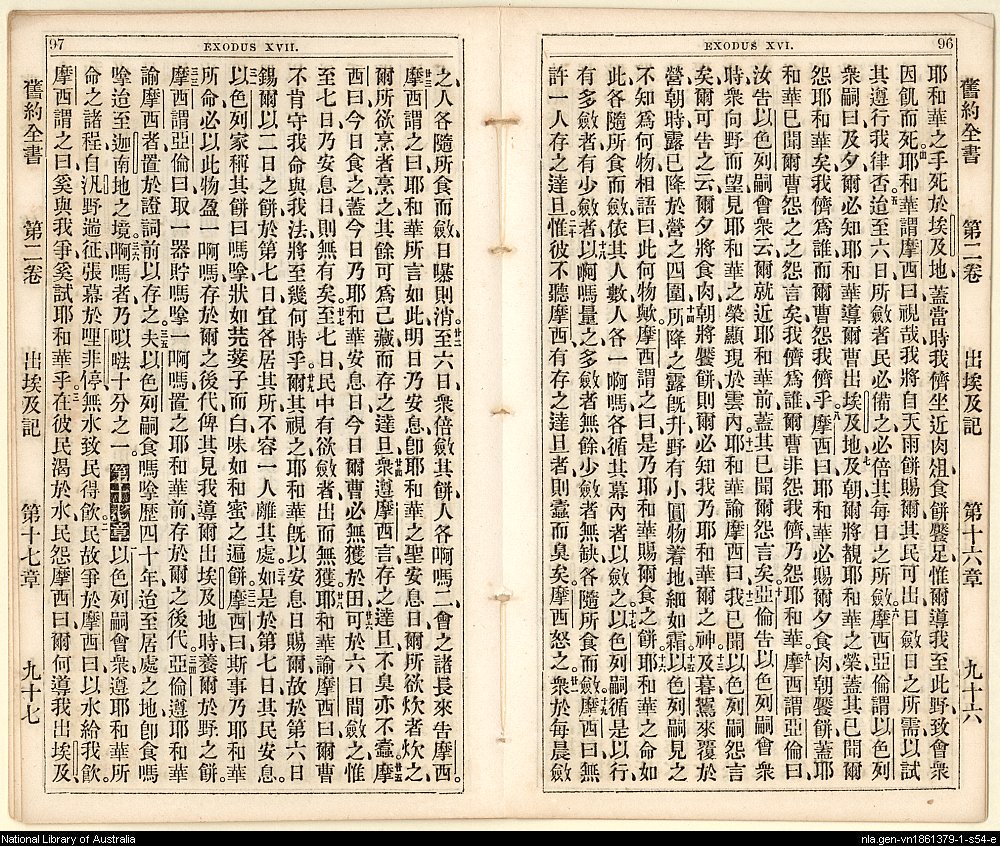 96
EXODUS XVI.
舊約全書 第二卷 出埃及記 第十六章 九十六
耶和華之手死於埃及地、蓋當時我儕坐近肉俎、食餅饜足、惟爾導我至此野、致會衆
因飢而死。耶和華謂摩西曰、視哉、我將自天雨餅賜爾、其民可出、日斂日之所需、以試
其遵行我律否。迨至六日、所斂者民必備之、必倍其每日之所斂。摩西亞倫謂以色列
衆嗣曰、及夕、爾必知耶和華導爾曹出埃及地。及朝、爾將覩耶和華之榮、蓋其已聞爾
怨耶和華矣、我儕爲誰、而爾曹怨我儕乎。摩西曰、耶和華必賜爾夕食肉、朝饜餅、蓋耶
和華已聞爾曹怨之之怨言矣、我儕爲誰、爾曹非怨我儕、乃怨耶和華。摩西謂亞倫曰、
汝告以色列嗣會衆云、爾就近耶和華前、蓋其已聞爾怨言矣。亞倫告以色列嗣會衆
時、衆向野而望、見耶和華之榮顯現於雲內。耶和華諭摩西曰、我已聞以色列嗣怨言
矣、爾可告之云、爾夕將食肉、朝將饜餅、則爾必知我乃耶和華爾之神。及暮、鶉來覆於
營、朝時露已降於營之四圍。所降之露旣升、野有小圓物着地、細如霜。以色列嗣見之、
不知爲何物、相語曰、此何物歟、摩西謂之曰、是乃耶和華賜爾食之餅。耶和華之命如
此、各隨所食而斂、依其人數、人各一啊嗎、各循其幕內者以斂之。以色列嗣循是以行、
有多斂者、有少斂者。以啊嗎量之、多斂者無餘、少斂者無缺、各隨所食而斂。摩西曰、無
許一人存之達旦。惟彼不聽摩西、有存之達旦者、則蠹而臭矣、摩西怒之。衆於每晨斂
97
EXODUS XVII.
之、人各隨所食而斂、日曝則消。至六日、衆倍斂其餅、人各啊嗎二、會之諸長來告摩西。
摩西謂之曰、耶和華所言如此、明日乃安息、卽耶和華之聖安息日、爾所欲炊者炊之、
爾所欲烹者烹之、其餘可爲己藏而存之達旦。衆遵摩西言、存之達旦、不臭亦不蠹。摩
西曰、今日食之、蓋今日乃耶和華安息日、今日爾曹必無獲於田。可於六日間斂之、惟
至七日乃安息日、則無有矣。至七日、民中有欲斂者出而無獲。耶和華諭摩西曰、爾曹
不肯守我命與我法、將至幾何時乎。爾其視之、耶和華旣以安息日賜爾、故於第六日
錫爾以二日之餅、於第七日宜各居其所、不容一人離其處。如是於第七日、其民安息。
以色列家稱其餅曰嗎嗱、狀如芫荽子而白、味如和蜜之遍餅。摩西曰、斯事乃耶和華
所命、必以此物盈一啊嗎、存於爾之後代、俾其見我導爾出埃及地時、養爾於野之餅。
摩西謂亞倫曰、取一器貯嗎嗱一啊嗎、置之耶和華前、存於爾之後代。亞倫遵耶和華
諭摩西者、置於證詞前以存之。夫以色列嗣食嗎嗱、歷四十年、迨至居處之地、卽食嗎
嗱迨至迦南地之境。啊嗎者乃𠲖呿十分之一。第十七章 以色列嗣會衆遵耶和華所
命之諸程、自汛野遄征、張幕於哩非停、無水致民得飲。民故爭於摩西曰、以水給我飲、
摩西謂之曰、奚與我爭、奚試耶和華乎。在彼民渴於水、民怨摩西曰、爾何導我出埃及、
舊約全書 第二卷 出埃及記 第十七章 九十七
National Library of Australia
nla.gen-vn1861379-1-s54-e